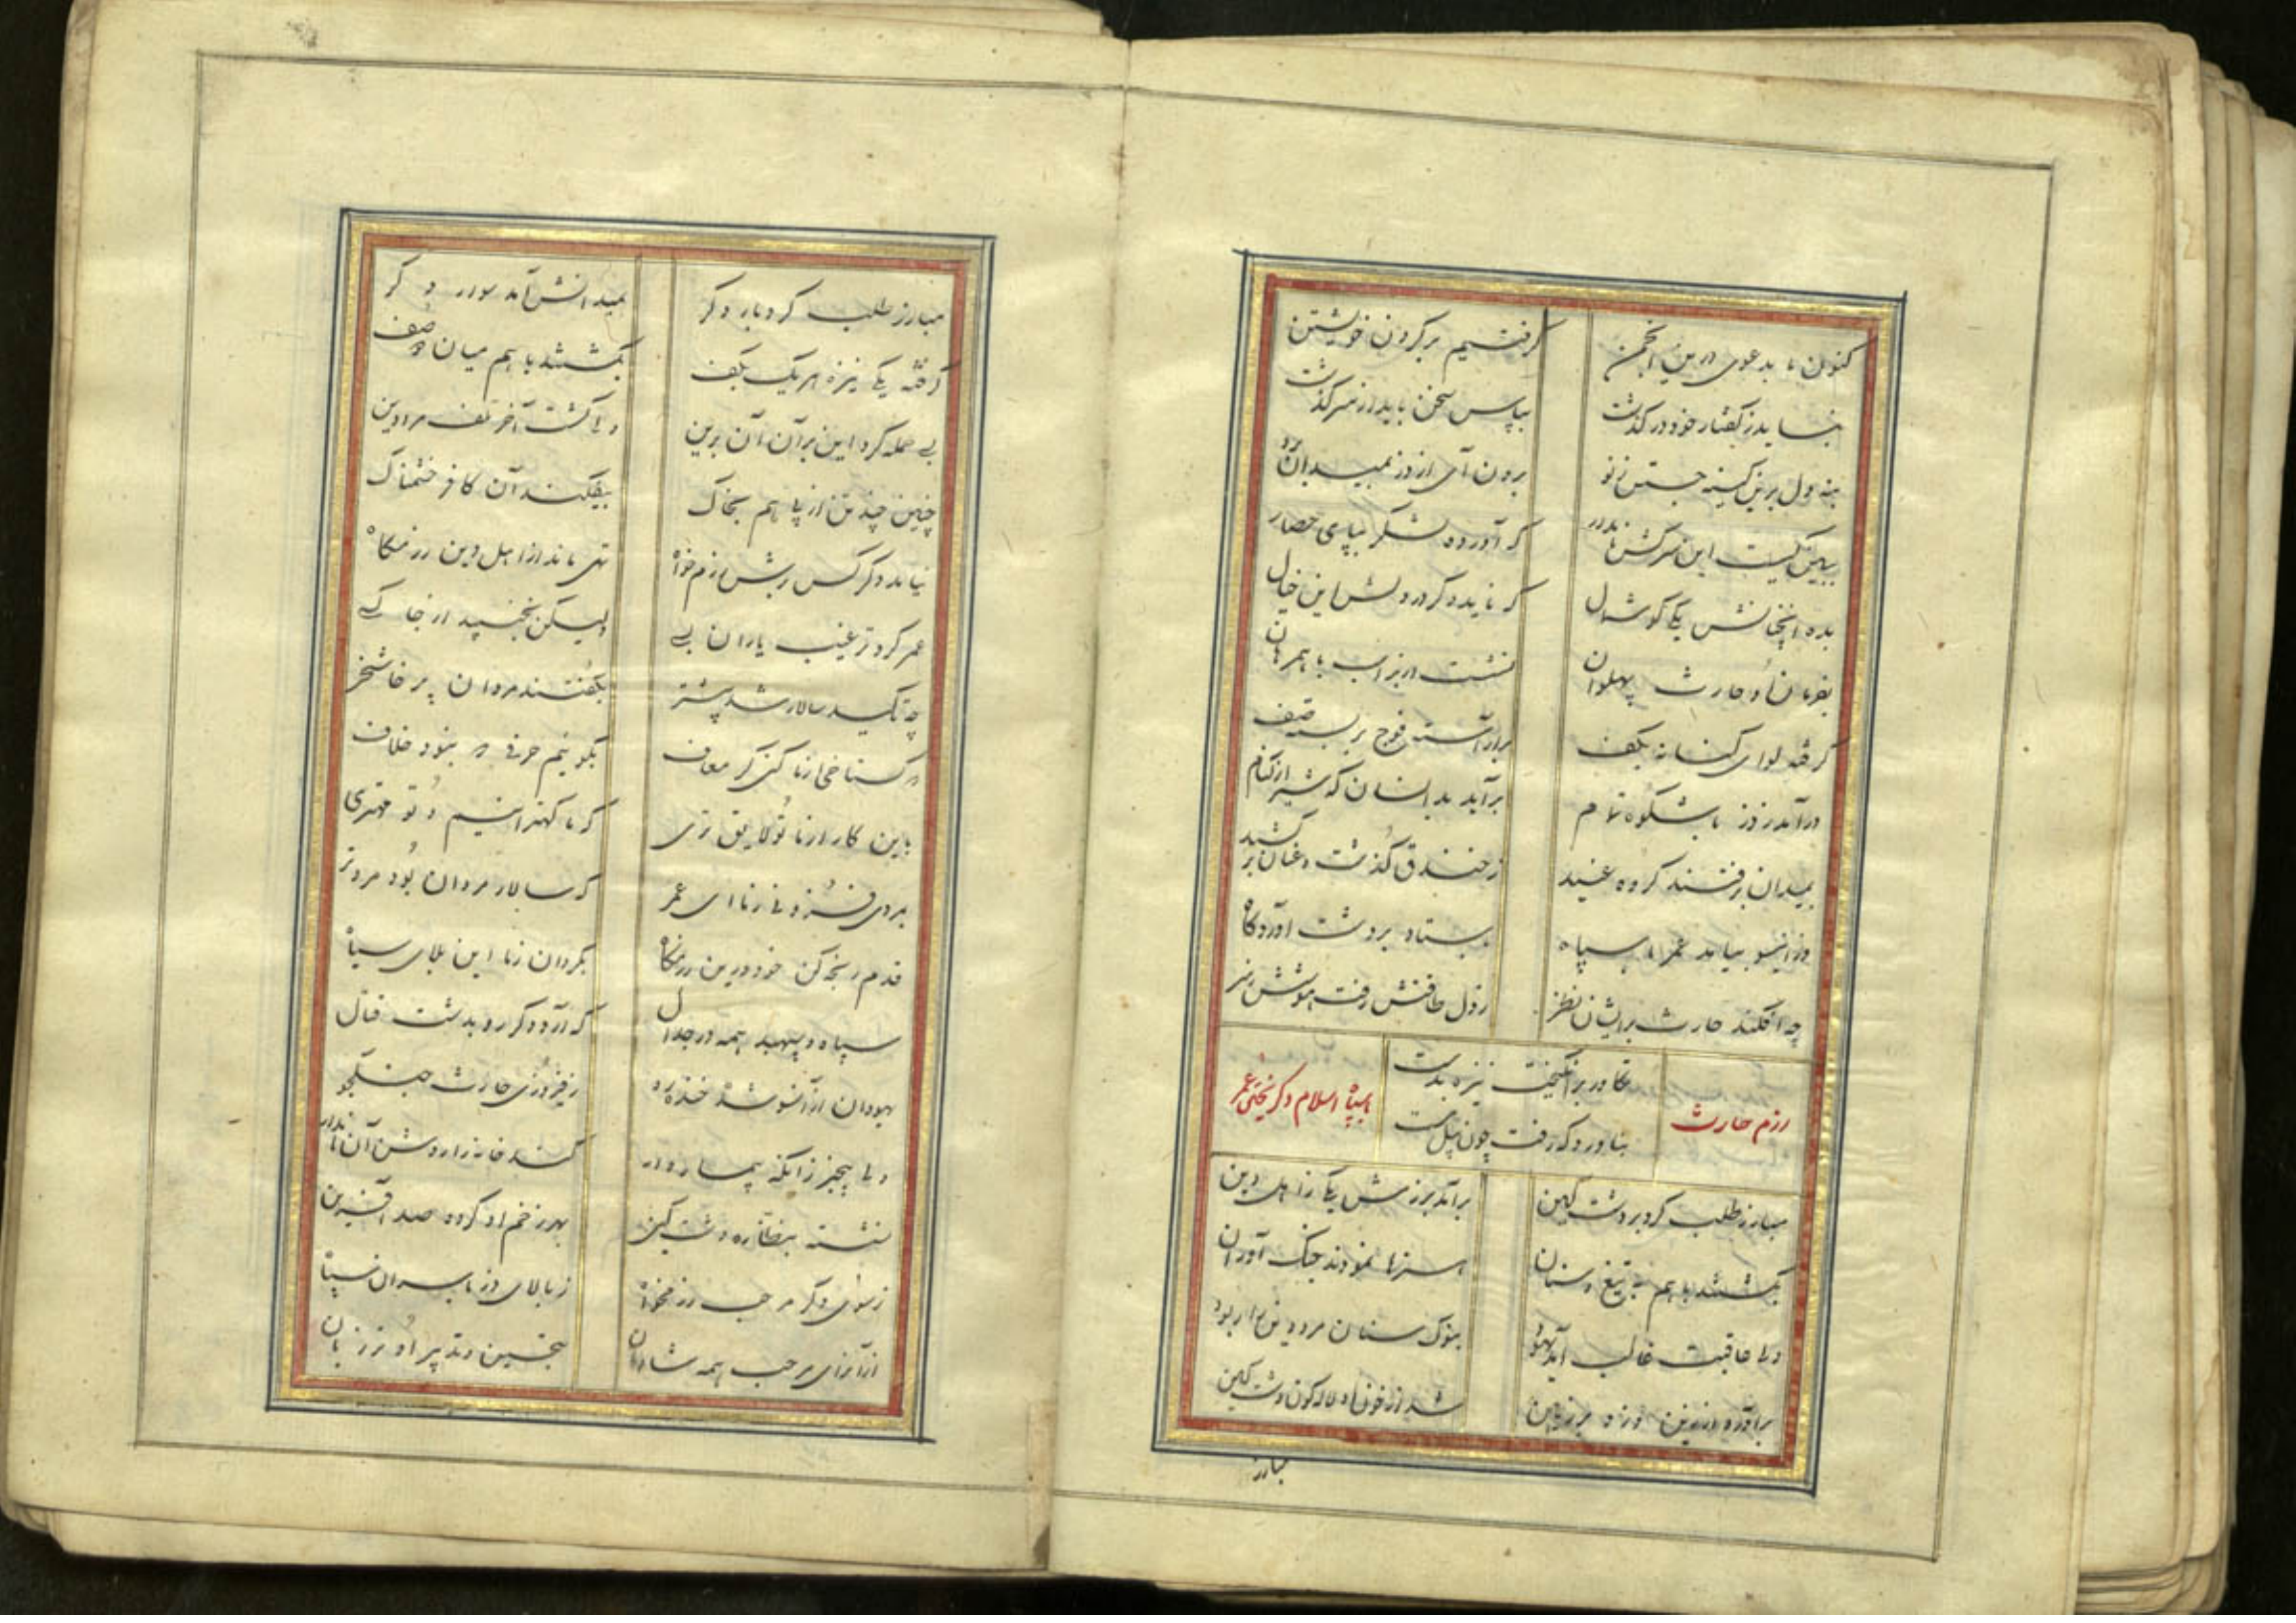 کنون ما بدعوی درین انجمن گرفتیم بر گردن خویشتن
نشاید ز گفتار خود درگذشت بپاس سخن باید از سر گذشت
بنه دل برین کینه جستن ز نو برون آی از دز بمیدان برو
ببین کیست این سرکش نامدار که آورده لشکر بپای حصار
بده آنچنانش یکی گوشمال که ناید دگر در دلش این خیال
بفرمان او حارث پهلوان نشست از بر اسب با همرهان
گرفته لوای کسانه بکف برآراسته فوج بربسته صف
درآمد ز دز با شکوه تمام برآید بدانسان که شیر از کنام
بمیدان برفتند کرده عنید ز خندق گذشت و عنان برکشید
وزانسو بیامد عمر با سپاه ستاد بر دشت آوردگاه
چه افکند حارث بر ایشان نظر ز دل طاقتش رفت هوشش ز سر
رزم حارث
تکاور برانگیخت نیزه بدست
بناوردگه رفت چون پیل مست
با سپاه اسلام و گریختن عمر
مبارز طلب کرد بر دشت کین برآمد برزمش یکی ز اهل دین
بگشتند با هم به تیغ و سنان هنرها نمودند جنگ آوران
ولی عاقبت غالب آمد یهود بنوک سنان مرد دین را ربود
برآورد از زین و زد بر زمین شد از خون او لاله‌گون دشت کین
مبارز
مبارز طلب کرد بار دگر بمیدانش آمد سوار دگر
گرفته یکی نیزه هر یک بکف بگشتند با هم میان دو صف
بسی حمله کرد این بر آن آن برین ولی گشت آخر تلف مرد دین
چنین چند تن از پی هم بخاک بیفکند آن کافر خشمناک
نیامد دگر کس برش رزم‌خواه تهی ماند از اهل دین رزمگاه
عمر کرد ترغیب یاران بسی ولیکن نجنبید از جا کسی
چه تاکید سالار شد پیشتر بگفتند مردان پرخاشخر
که گستاخی از ما کنی گر معاف بگوئیم حرفی که نبود خلاف
باین کار از ما تو لایق‌تری که ما کهترانیم و تو مهتری
بمردی فزونی ز ما ای عمر که سالار مردان بود مردتر
قدم رنجه کن خود درین رزمگاه بگردان ز ما این بلای سیاه
سپاه و سپهبد همه در جدال که آرد دگر رو بدشت قتال
یهودان از آنسو شده خنده‌رو ز فیروزی حارث جنگجو
ولی بیخبر زانکه پیمانه‌وار کند خانه زار و دش آن نامدار
نشسته بنظاره دشت کین بهر زخم او کرده صد آفرین
ز سوی دگر مرحب رزمخواه ز بالای دز با سران سپاه
از آن رای مرحب همه شادمان بتحسین و تدبیر او تر زبان